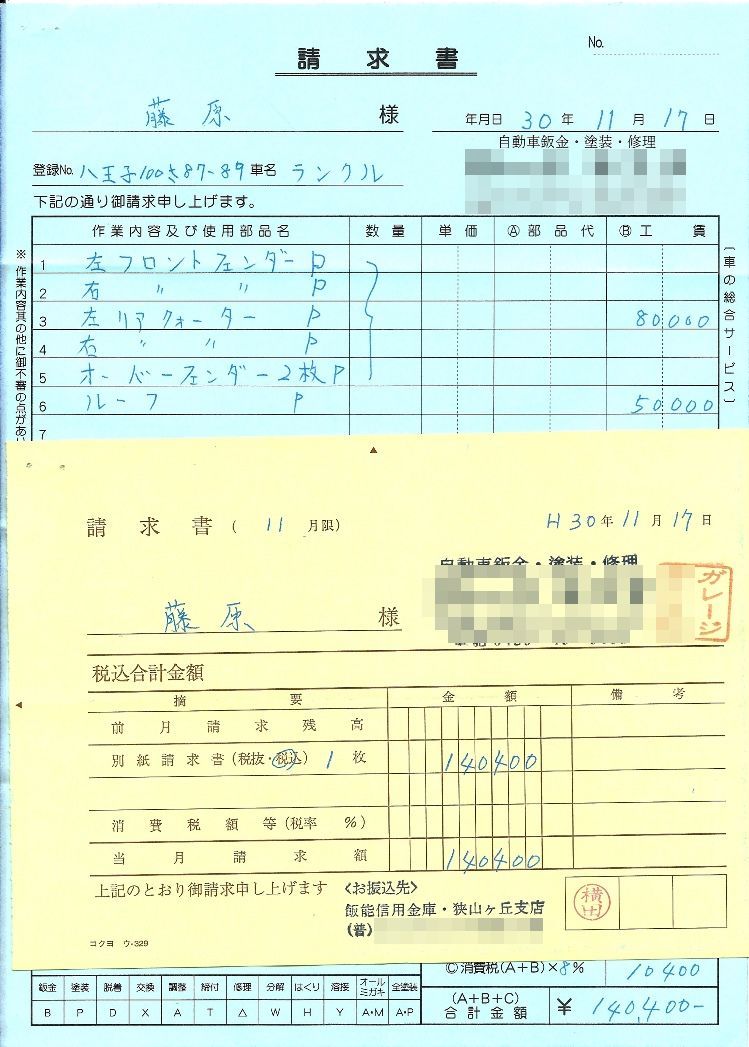 請求書
No.
藤原 様
年月日 30年 11月 17日
自動車鈑金・塗装・修理
登録No. 八王子100さ87-89 車名 ランクル
下記の通り御請求申し上げます。
作業内容及び使用部品名 数量 単価 Ⓐ部品代 Ⓑ工賃
1 左フロントフェンダー P
2 右 〃 〃 P
3 左リアクォーター P 80000
4 右 〃 〃 P
5 オーバーフェンダー2枚P
6 ルーフ P 50000
7
※作業内容其の他に御不審の点があ
〔車の総合サービス〕
請求書(11月限)
H30年11月17日
自動車鈑金・塗装・修理
ガレージ
藤原 様
税込合計金額
摘要 金額 備考
前月請求残高
別紙請求書(税抜・税込) 1枚 140400
消費税額等(税率 %)
当月請求額 140400
上記のとおり御請求申し上げます
<お振込先>
飯能信用金庫・狭山ヶ丘支店
(普)
横田
コクヨ ウ-329
Ⓒ消費税(A+B)×8% 10400
(A+B+C)
合計金額 ¥140,400-
鈑金 塗装 脱着 交換 調整 締付 修理 分解 はくり 溶接 オールミガキ 全塗装
B P D X A T △ W H Y A・M A・P